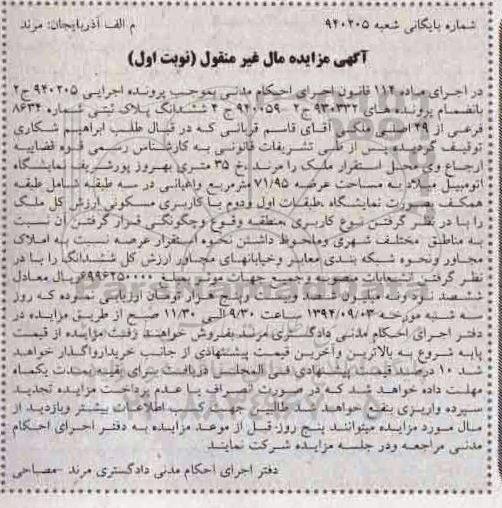 شماره بایگانی شعبه ۹۴۰۲۰۵ م الف آذربایجان: مرند
آگهی مزایده مال غیر منقول (نوبت اول)
در اجرای ماده ۱۱۴ قانون اجرای احکام مدنی بموجب پرونده اجرایی ۹۴۰۲۰۵ ج۲
بانضمام پرونده های ۹۳۰۳۳۲ ج۲ ۹۴۰۰۵۹ ج۴ ششدانگ پلاک ثبتی شماره ۸۶۳۴
فرعی از ۴۹ اصلی ملکی آقای قاسم قربانی که در قبال طلب ابراهیم شکاری
توقیف گردیده پس از طی تشریفات قانونی به کارشناس رسمی قوه قضاییه
ارجاع وی محل استقرار ملک را مرند خ ۳۵ متری بهروز پورشریف نمایشگاه
اتومبیل میلاد به مساحت عرصه ۷۱/۹۵ مترمربع واعیانی در سه طبقه شامل طبقه
همکف بصورت نمایشگاه طبقات اول ودوم با کاربری مسکونی ارزش کل ملک
را با در نظر گرفتن نوع کاربری منطقه وقوع وچگونگی قرار گرفتن آن نسبت
به مناطق مختلف شهری وملحوظ داشتن نحوه استقرار عرصه نسبت به املاک
مجاور ونحوه شبکه بندی معابر وخیابانهای مجاور ارزش کل ششدانگ را با در
نظر گرفتن انشعابات منصوبه وجمیع جهات موثر بمبلغ ۶۹۹۶۲۵۰۰۰۰ ریال معادل
ششصد نود ونه میلیون ششصد وبیست وپنج هزار تومان ارزیابی نموده که روز
سه شنبه مورخه ۱۳۹۴/۰۹/۰۳ ساعت ۹/۳۰ الی ۱۱/۳۰ صبح از طریق مزایده در
دفتر اجرای احکام مدنی دادگستری مرند بفروش خواهند رفت مزایده از قیمت
پایه شروع به بالاترین وآخرین قیمت پیشنهادی از جانب خریدارواگذار خواهد
شد ۱۰ درصد قیمت پیشنهادی فی المجلس دریافت برای بقیه بمدت یکماه
مهلت داده خواهد شد که در صورت انصراف یا عدم پرداخت مزایده تجدید
سپرده واریزی بنفع خواهد شد طالبین جهت کسب اطلاعات بیشتر وبازدید از
مال مورد مزایده میتوانند پنج روز قبل از موعد مزایده به دفتر اجرای احکام
مدنی مراجعه ودر جلسه مزایده شرکت نمایند
دفتر اجرای احکام مدنی دادگستری مرند -مصباحی
ParsNamadData